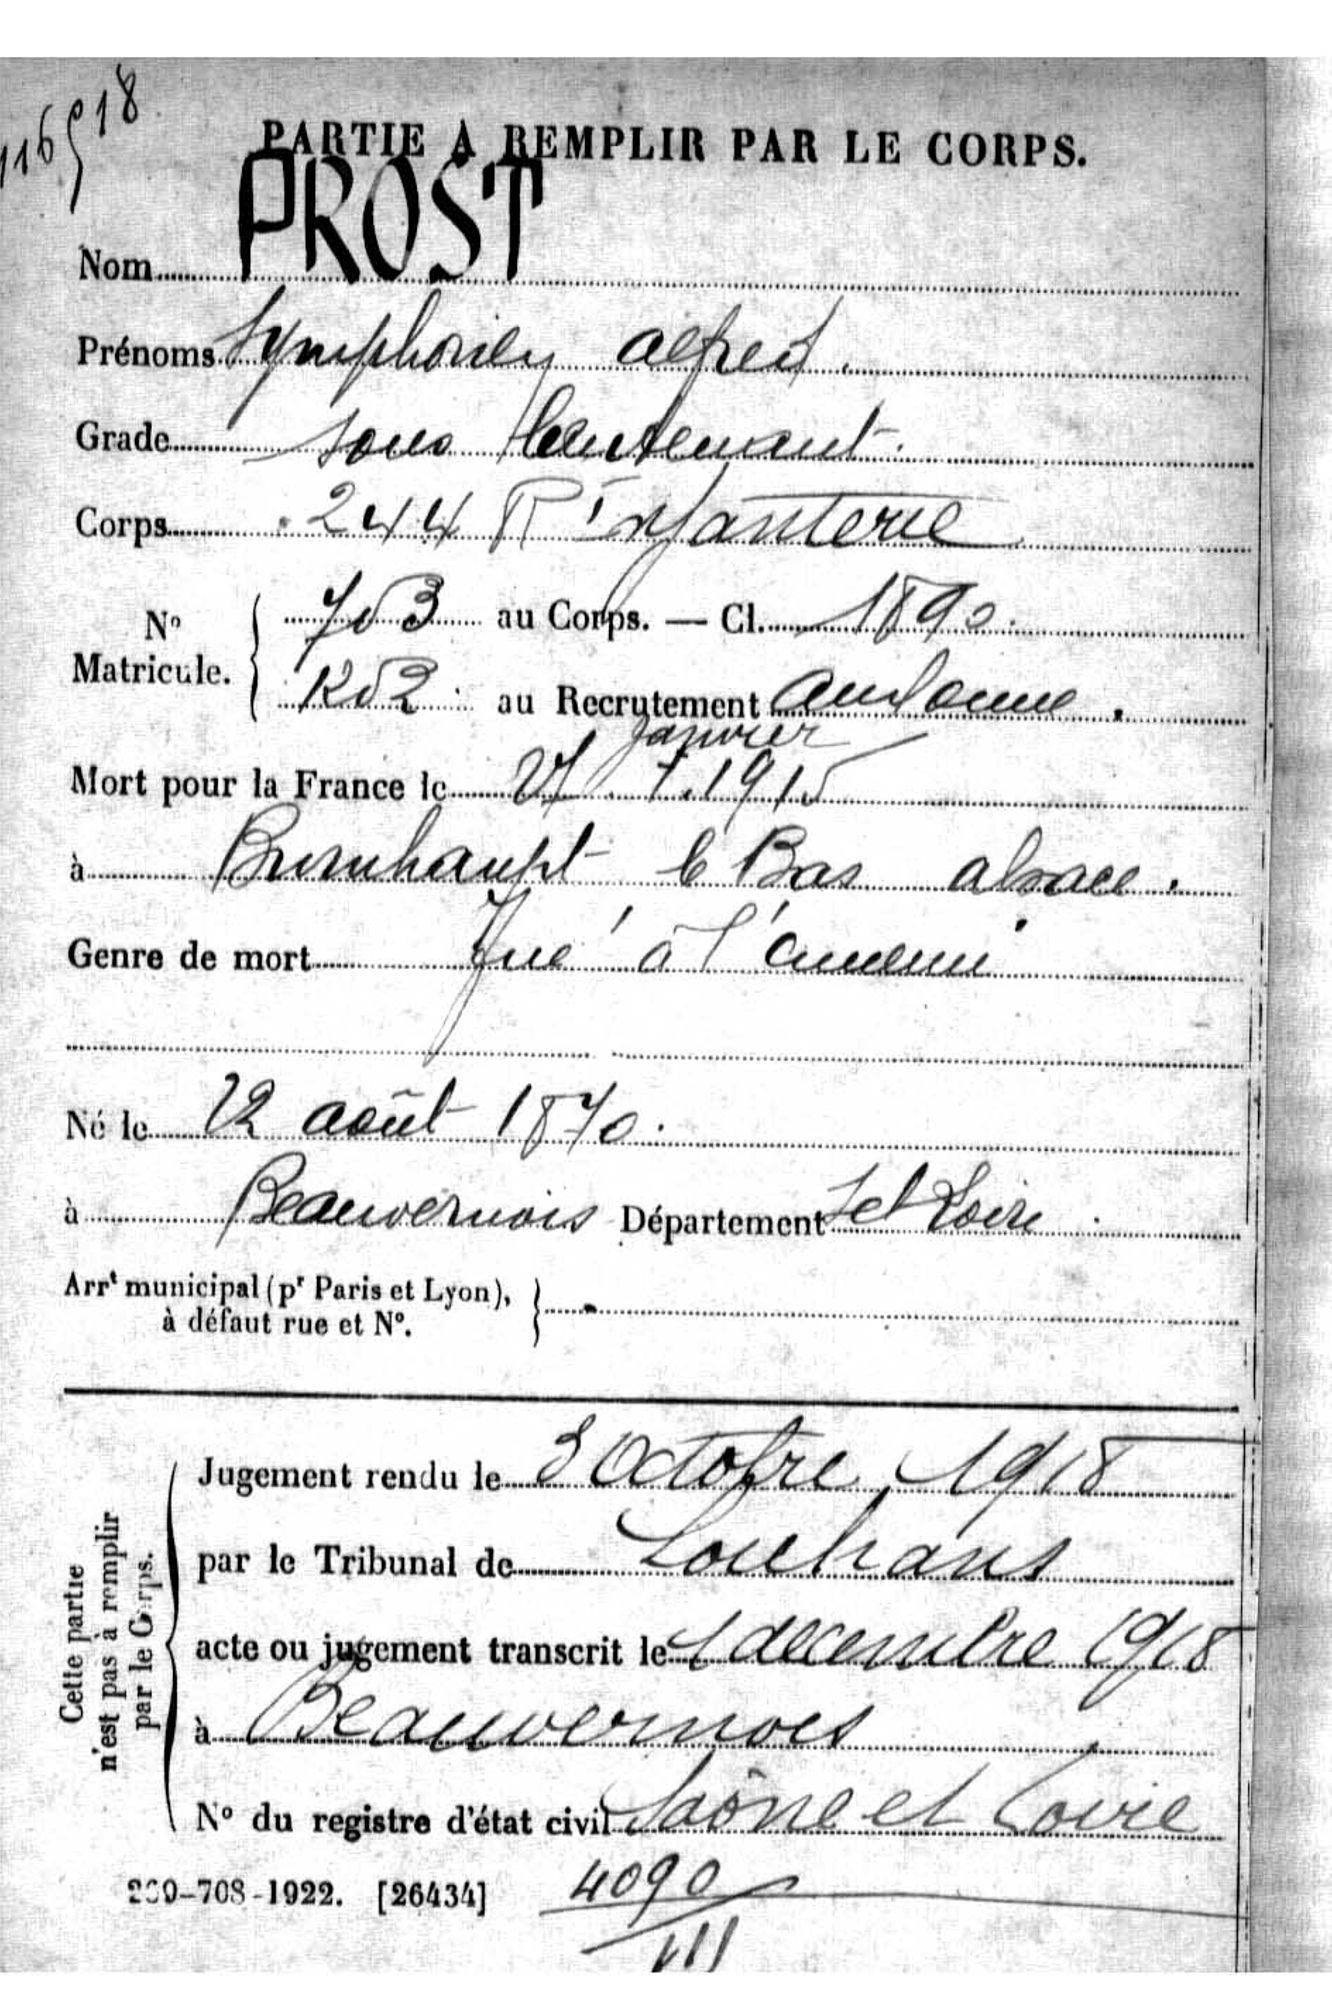 116518
PARTIE A REMPLIR PAR LE CORPS.
Nom PROST
Prénoms Symphorien alfred.
Grade sous lieutenant.
Corps 244 R Infanterie
No Matricule. 753 au Corps. — Cl. 1890.
1252 au Recrutement auxonne.
janvier
Mort pour la France le 27 1.1915
à Burnhaupt le Bas alsace.
Genre de mort Tué à l'ennemi
Né le 22 août 1870.
à Beauvernois Département S et Loire
Arrt municipal (pr Paris et Lyon),
à défaut rue et No.
Cette partie
n'est pas à remplir
par le Corps.
Jugement rendu le 3 Octobre 1918
par le Tribunal de Louhans
acte ou jugement transcrit le 1 decembre 1918
à Beauvernois
No du registre d'état civil Saône et Loire
-708-1922. [26434]
4090